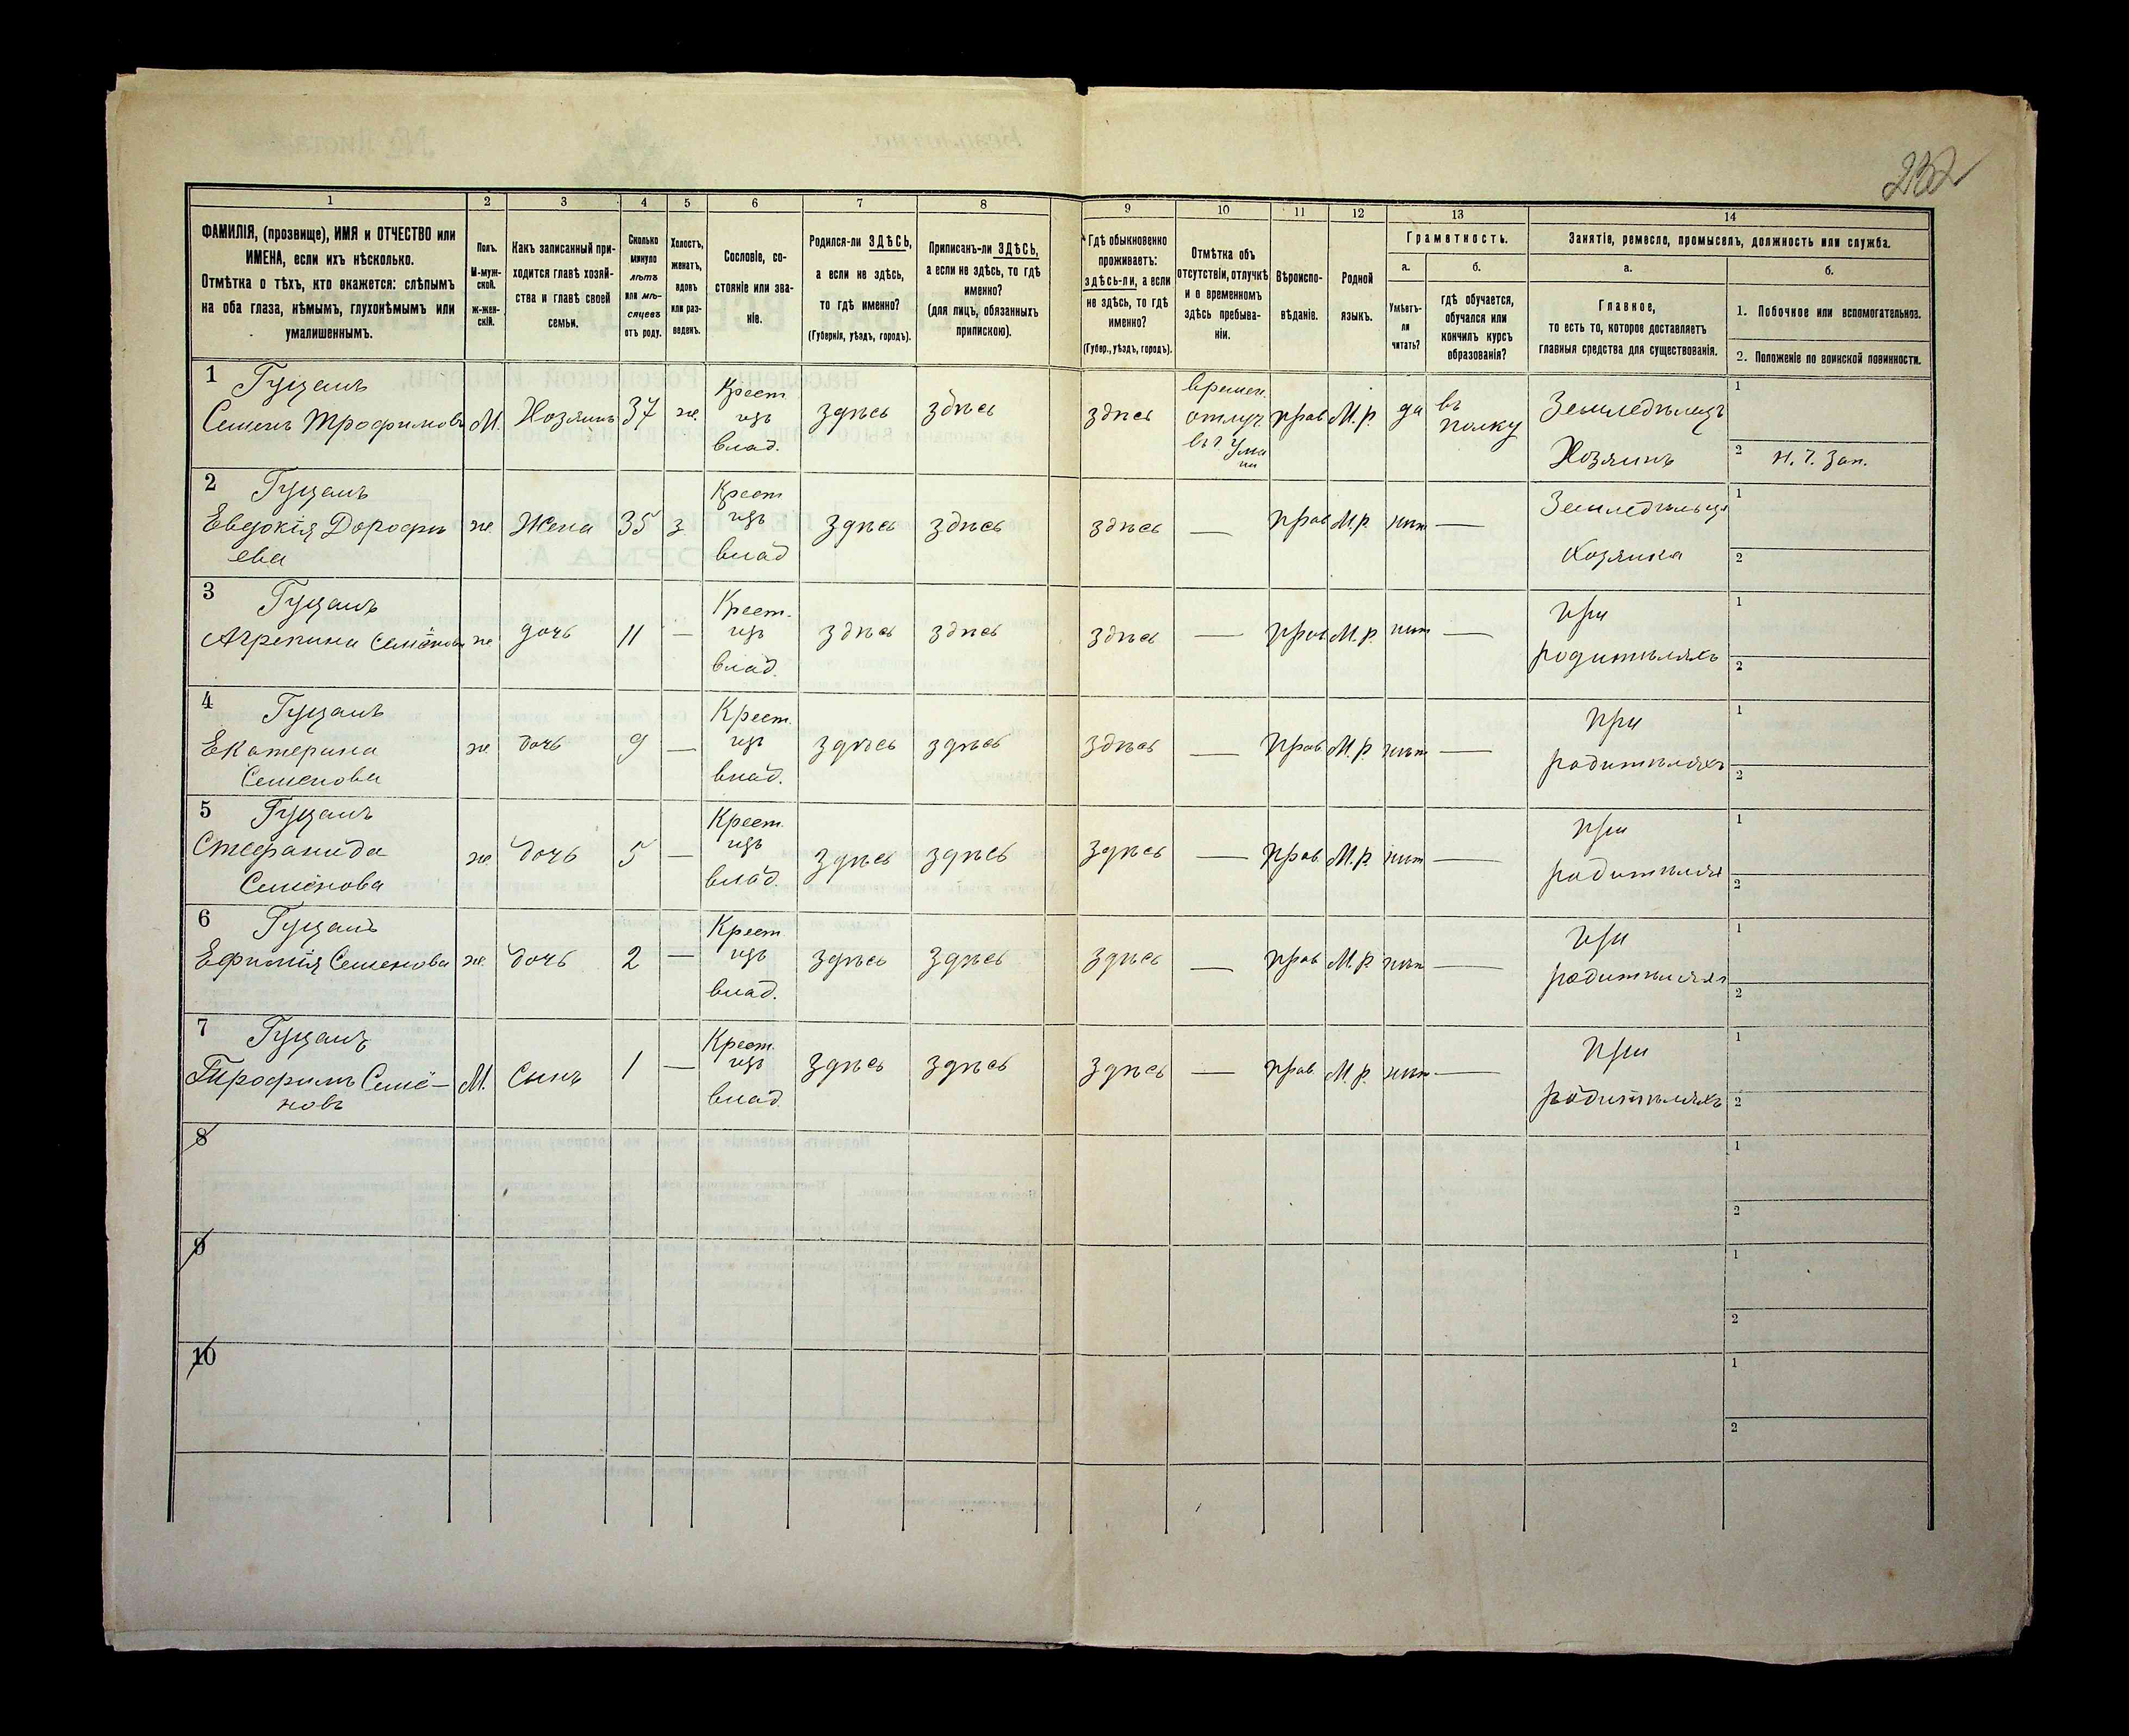 232
1 2 3 4 5 6 7 8 9 10 11 12 13 14
ФАМИЛІЯ, (прозвище), ИМЯ и ОТЧЕСТВО или
ИМЕНА, если ихъ нѣсколько.
Отмѣтка о тѣхъ, кто окажется: слѣпымъ
на оба глаза, нѣмымъ, глухонѣмымъ или
умалишеннымъ.
Полъ.
М-муж-
ской.
Ж-жен-
скій.
Какъ записанный при-
ходится главѣ хозяй-
ства и главѣ своей
семьи.
Сколько
минуло
лѣтъ
или мѣ-
сяцевъ
отъ роду.
Холостъ,
женатъ,
вдовъ
или раз-
веденъ.
Сословіе, со-
стояніе или зва-
ніе.
Родился-ли ЗДѢСЬ,
а если не здѣсь,
то гдѣ именно?
(Губернія, уѣздъ, городъ).
Приписанъ-ли ЗДѢСЬ,
а если не здѣсь, то гдѣ
именно?
(для лицъ, обязанныхъ
припискою).
Гдѣ обыкновенно
проживаетъ:
здѣсь-ли, а если
не здѣсь, то гдѣ
именно?
(Губер., уѣздъ, городъ).
Отмѣтка объ
отсутствіи, отлучкѣ
и о временномъ
здѣсь пребыва-
ніи.
Вѣроиспо-
вѣданіе.
Родной
языкъ.
Грамотность.
а.
Умѣетъ-
ли
читать?
б.
гдѣ обучается,
обучался или
кончилъ курсъ
образованія?
Занятіе, ремесло, промыселъ, должность или служба.
а.
Главное,
то есть то, которое доставляетъ
главныя средства для существованія.
б.
1. Побочное или вспомогательное.
2. Положеніе по воинской повинности.
1 Гуцалъ
Семенъ Трофимовъ М. Хозяинъ 37 же. Крест. изъ влад. здѣсь здѣсь здѣсь времен. отлуч. въ г. Умани прав М.р. да въ полку Земледѣлецъ Хозяинъ 1
2 Н. Ч. Зап.
2 Гуцалъ
Евдокія Дорофѣ
ева же. Жена 35 з. Крест изъ влад здѣсь здѣсь здѣсь — прав М.р. нѣт — Земледѣльца Хозяина 1
2
3 Гуцалъ
Агрепина Семёнова же дочь 11 — Крест. изъ влад. здѣсь здѣсь здѣсь — прав М.р. нѣт — при родитѣляхъ 1
2
4 Гуцалъ
Екатерина
Семенова же дочь 9 — Крест. изъ влад. здѣсь здѣсь здѣсь — прав. М.р. нѣт — при родитѣляхъ 1
2
5 Гуцалъ
Стефанида
Семёнова же. дочь 5 — Крест. изъ влад. здѣсь здѣсь здѣсь — прав. М.р. нѣт — при родитѣлях 1
2
6 Гуцалъ
Ефимія Семенова же. дочь 2 — Крест. изъ влад. здѣсь здѣсь здѣсь — прав М.р. нѣт — при родитѣляхъ 1
2
7 Гуцалъ
Трофимъ Семё-
новъ М. Сынъ 1 — Крест. изъ влад. здѣсь здѣсь здѣсь — прав. М.р. нѣт — при родитѣляхъ 1
2
8 1
2
9 1
2
10 1
2